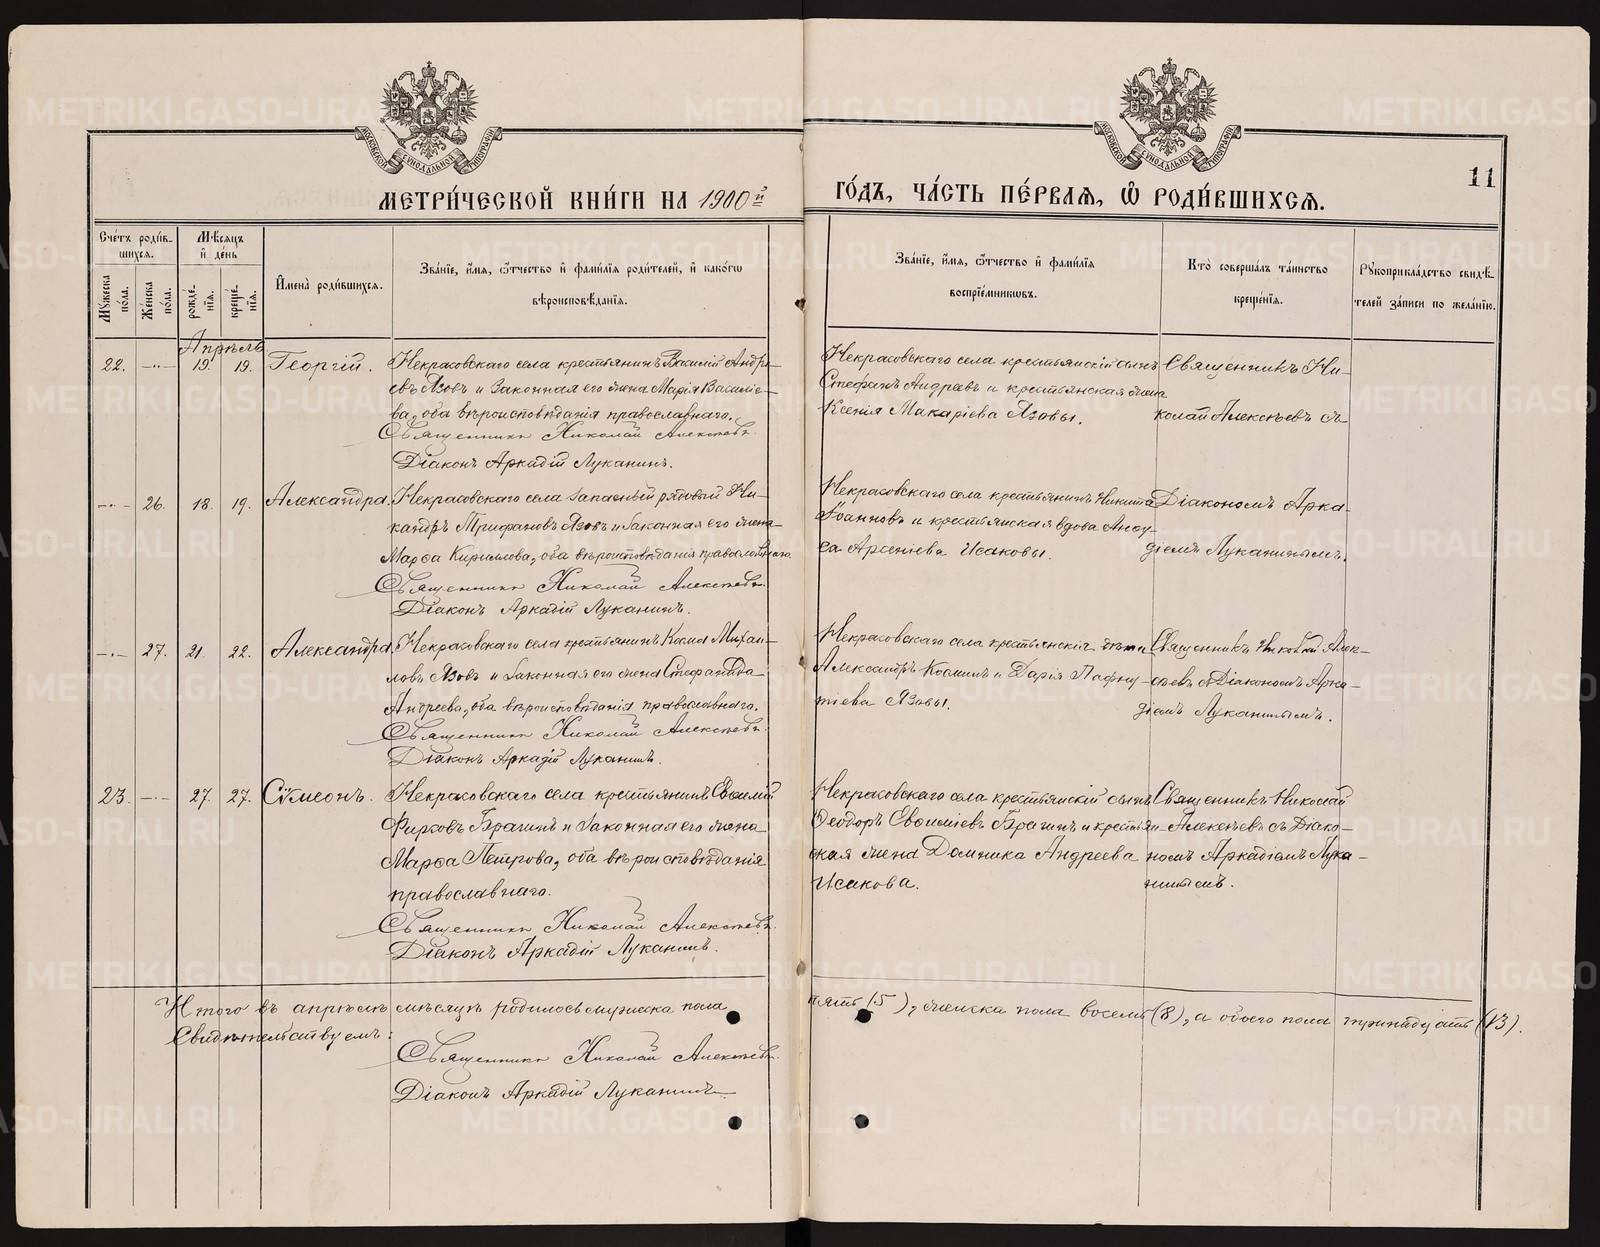 МОСКОВСКОЙ СУНОДАЛЬНОЙ ТИПОГРАФІИ
МОСКОВСКОЙ СУНОДАЛЬНОЙ ТИПОГРАФІИ
11
МЕТРИ́ЧЕСКОЙ КНИ́ГИ НА 1900й
ГО́ДЪ, ЧА́СТЬ ПЕ́РВАЯ, Ѡ҆ РОДИ́ВШИХСЯ.
Сче́тъ роди́в-
шихся.
Мѣ́сяцъ
и҆ де́нь
Мꙋ́жеска по́ла.
Же́нска по́ла.
рожде́-нїя.
креще́-нїя.
И҆мена̀ роди́вшихся.
Зва́нїе, и҆́мя, ѻ҆́тчество и҆ фами́лїя роди́телей, и҆ како́гѡ
вѣроисповѣ́данїя.
Зва́нїе, и҆́мя, ѻ҆́тчество и҆ фами́лїя
воспрїе́мникѡвъ.
Кто̀ соверша́лъ та́инство
креще́нїя.
Рꙋкоприкла́дство свидѣ́-
телей за́писи по жела́нїю.
Апрѣль
22. -"- 19. 19. Георгій.
Некрасовскаго села крестьянинъ Василій Андре-
евъ Язовъ и законная его жена Марія Василіе-
ва, оба вѣроисповѣданія православнаго.
Священникъ Николай Алексѣевъ.
Діаконъ Аркадій Луканинъ.
Некрасовскаго села крестьянскій сынъ
Стефанъ Андреевъ и крестьянская жена
Ксенія Макаріева Язовы.
Священникъ Ни-
колай Алексѣевъ съ
-"- 26. 18. 19. Александра.
Некрасовскаго села запасный рядовый Ни-
кандръ Трифановъ Язовъ и законная его жена
Марѳа Кириллова, оба вѣроисповѣданія православнаго.
Священникъ Николай Алексѣевъ.
Діаконъ Аркадій Луканинъ.
Некрасовскаго села крестьянинъ Никита
Іоанновъ и крестьянская вдова Анѳу-
са Арсеніева Исаковы.
Діакономъ Арка-
діемъ Луканинымъ.
-"- 27. 21. 22. Александра.
Некрасовскаго села крестьянинъ Косма Михаи-
ловъ Язовъ и законная его жена Стефанида
Андреева, оба вѣроисповѣданія православнаго.
Священникъ Николай Алексѣевъ.
Діаконъ Аркадій Луканинъ.
Некрасовскаго села крестьянскія дѣти
Александръ Косминъ и Дарія Пафну-
тіева Язовы.
Священникъ Николай Алек-
сѣевъ съ Діакономъ Арка-
діемъ Луканинымъ.
23. -"- 27. 27. Сѷмеонъ.
Некрасовскаго села крестьянинъ Евѳимій
Фирсовъ Брагинъ и законная его жена
Марѳа Петрова, оба вѣроисповѣданія
православнаго.
Священникъ Николай Алексѣевъ.
Діаконъ Аркадій Луканинъ.
Некрасовскаго села крестьянскій сынъ
Ѳеодоръ Евѳиміевъ Брагинъ и крестьян-
ская жена Домника Андреева
Исакова.
Священникъ Николай
Алексѣевъ съ Діако-
номъ Аркадіемъ Лука-
нинымъ.
Итого въ апрѣлѣ мѣсяцѣ родилось мужеска пола пять (5), женска пола восемь (8), а обоего пола тринадцать (13).
Свидѣтельствуемъ:
Священникъ Николай Алексѣевъ.
Діаконъ Аркадій Луканинъ
METRIKI.GASO-URAL.RU